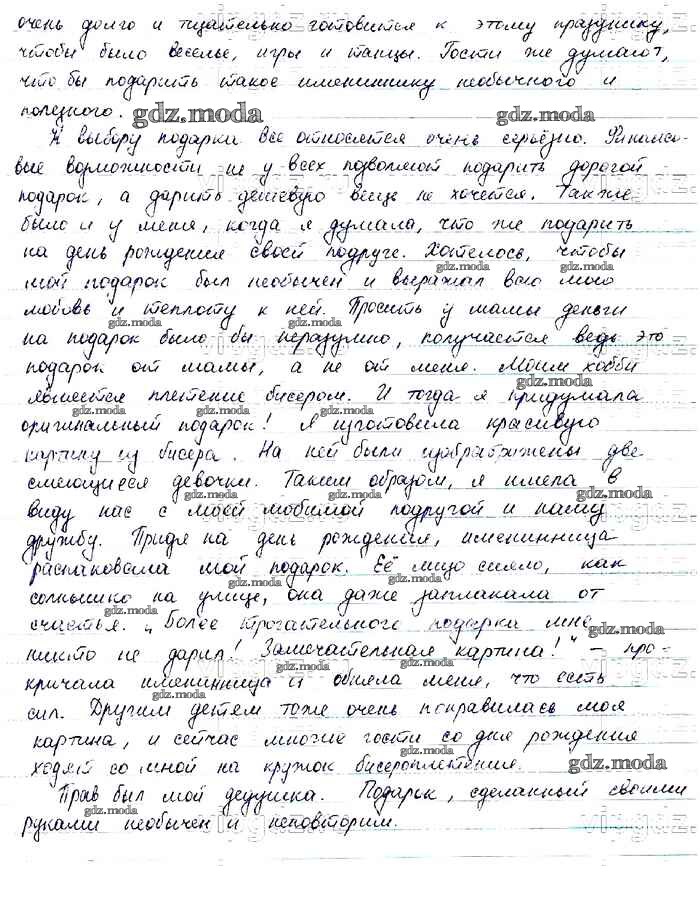 очень долго и тщательно готовится к этому празднику,
чтобы было веселье, игры и танцы. Гости же думают,
что бы подарить такое имениннику необычного и
полезного. gdz.moda gdz.moda
К выбору подарка все относятся очень серьёзно. Финансо-
вые возможности не у всех позволяют подарить дорогой
подарок, а дарить дешёвую вещь не хочется. Также
было и у меня, когда я думала, что же подарить
на день рождения своей подруге. Хотелось, чтобы
gdz.moda gdz.moda
мой подарок был необычен и выражал всю мою
любовь и теплоту к ней. Просить у мамы деньги
gdz.moda gdz.moda
на подарок было бы неразумно, получается ведь это
подарок от мамы, а не от меня. Моим хобби
gdz.moda
является плетение бисером. И тогда я придумала
gdz.moda gdz.moda
оригинальный подарок! Я изготовила красивую
картину из бисера. На ней были изображены две
gdz.moda gdz.moda
смеющиеся девочки. Таким образом, я имела в
gdz.moda gdz.moda
виду нас с моей любимой подругой и нашу
дружбу. Придя на день рождения, именинница
gdz.moda
распаковала мой подарок. Её лицо сияло, как
gdz.moda
солнышко на улице, она даже заплакала от
gdz.moda
счастья. „Более трогательного подарка мне
gdz.moda
никто не дарил! Замечательная картина!" – про-
gdz.moda gdz.moda
кричала именинница и обняла меня, что есть
сил. Другим детям тоже очень понравилась моя
картина, и сейчас многие гости со дня рождения
ходят со мной на кружок бисероплетения. gdz.moda
Прав был мой дедушка. Подарок, сделанный своими
gdz.moda
руками необычен и неповторим.